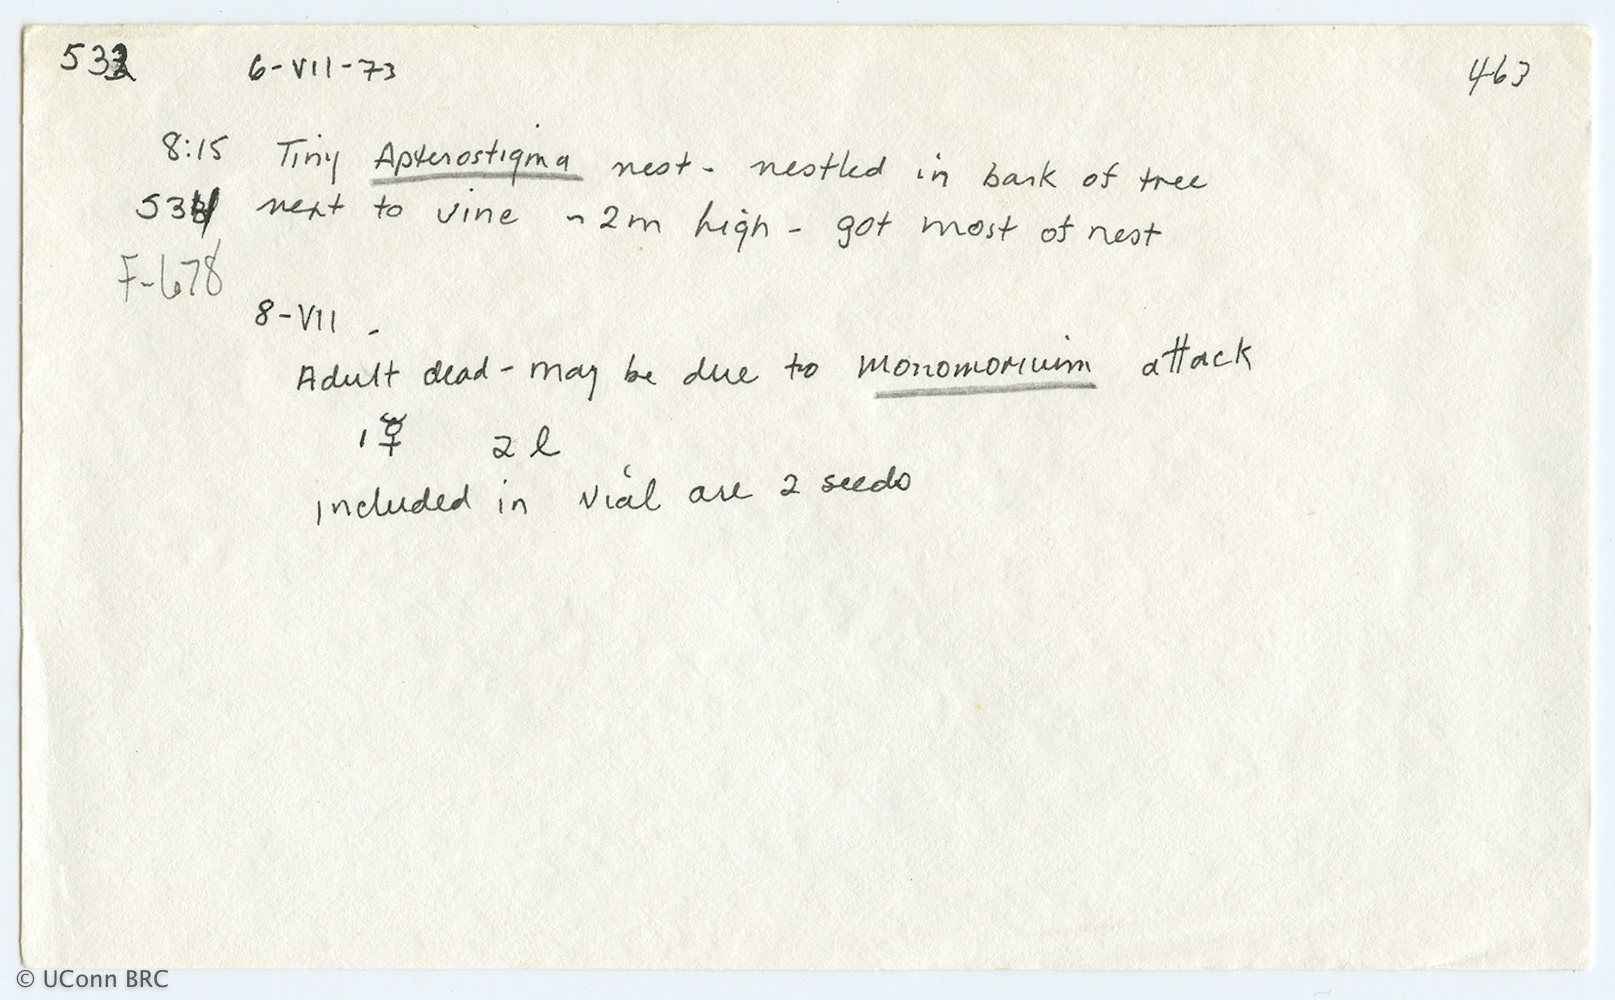 532 6-VII-73 463
8:15 Tiny Apterostigma nest - nestled in bark of tree
534 next to vine ~2m high - got most of nest
F-678
8-VII -
Adult dead - may be due to Monomorium attack
1 ☿ 2 l
Included in vial are 2 seeds
© UConn BRC